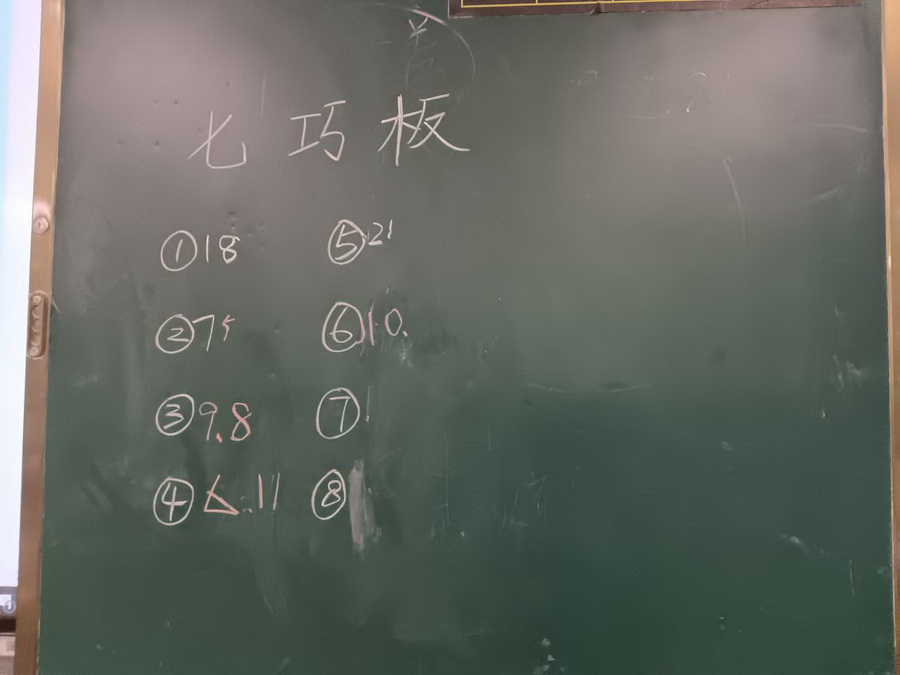 七巧板
①18 ⑤21
②75 ⑥10.
③9.8 ⑦1
④△.11 ⑧